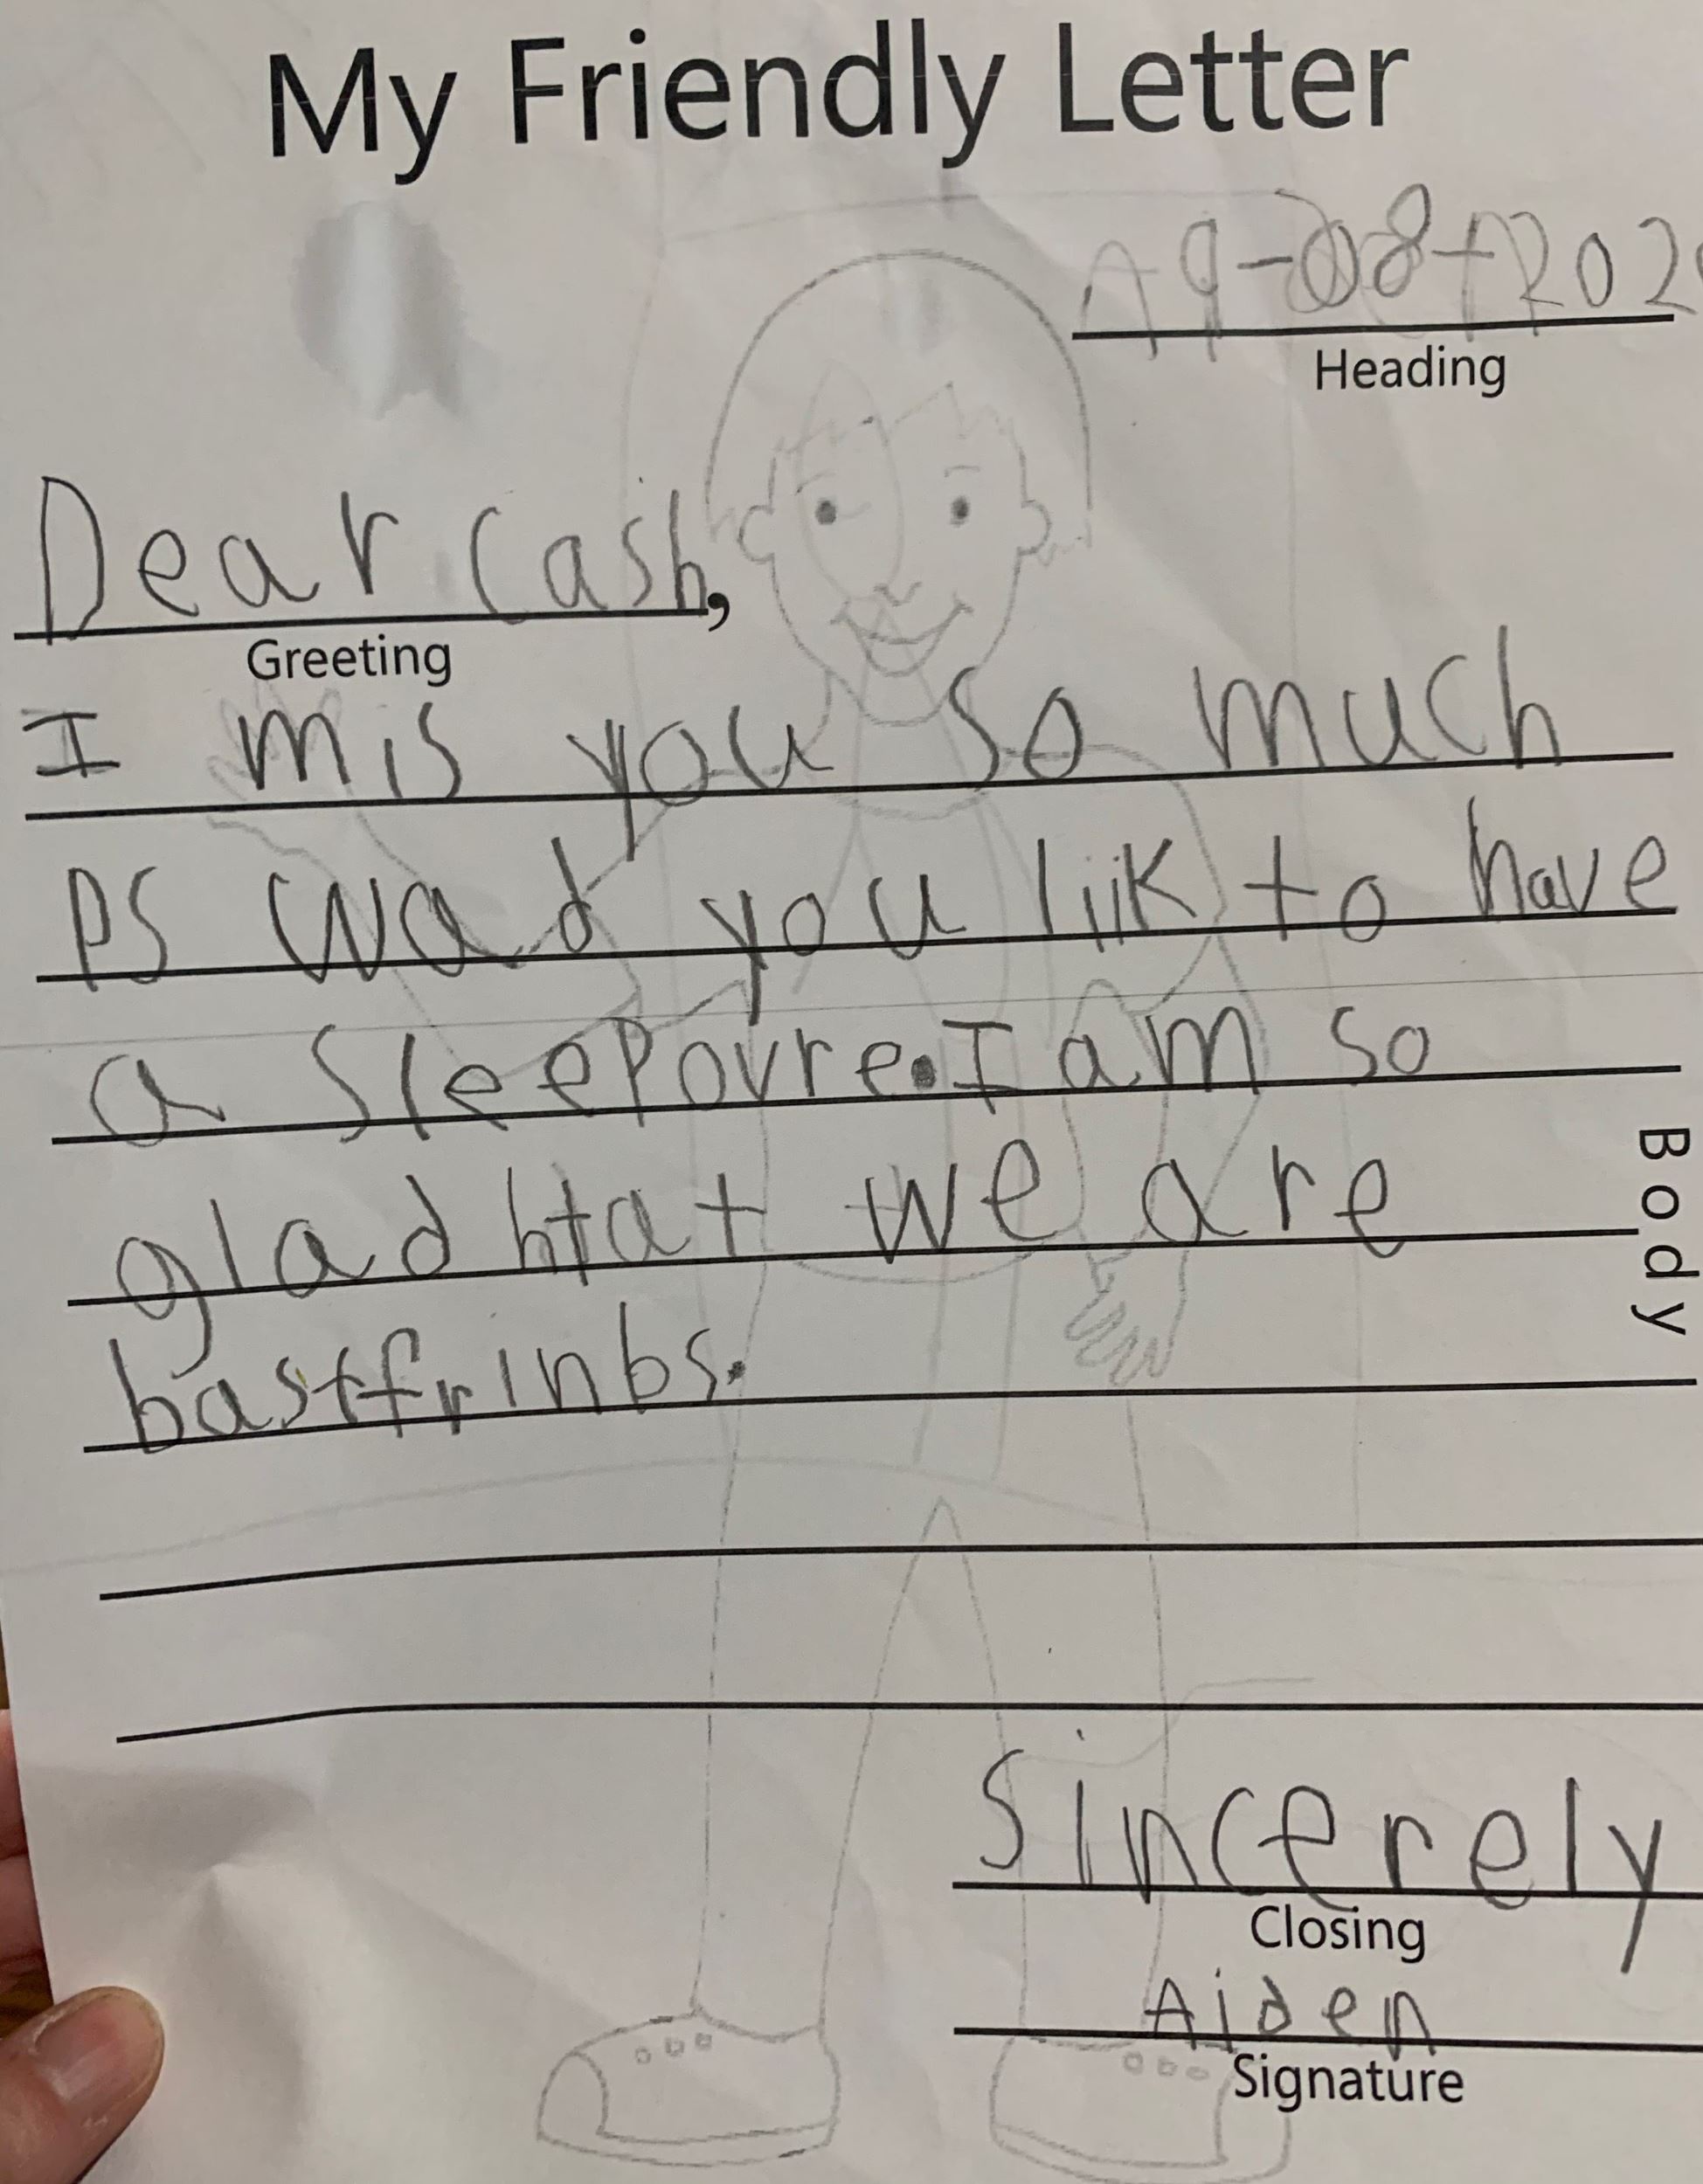 My Friendly Letter
Heading
Dear Cash,
Greeting
I mis you so much
PS wad you liik to have
a sleepovre. I am so
glad htat we are
bastfrinbs.
Body
Sincerely
Closing
Aiden
Signature